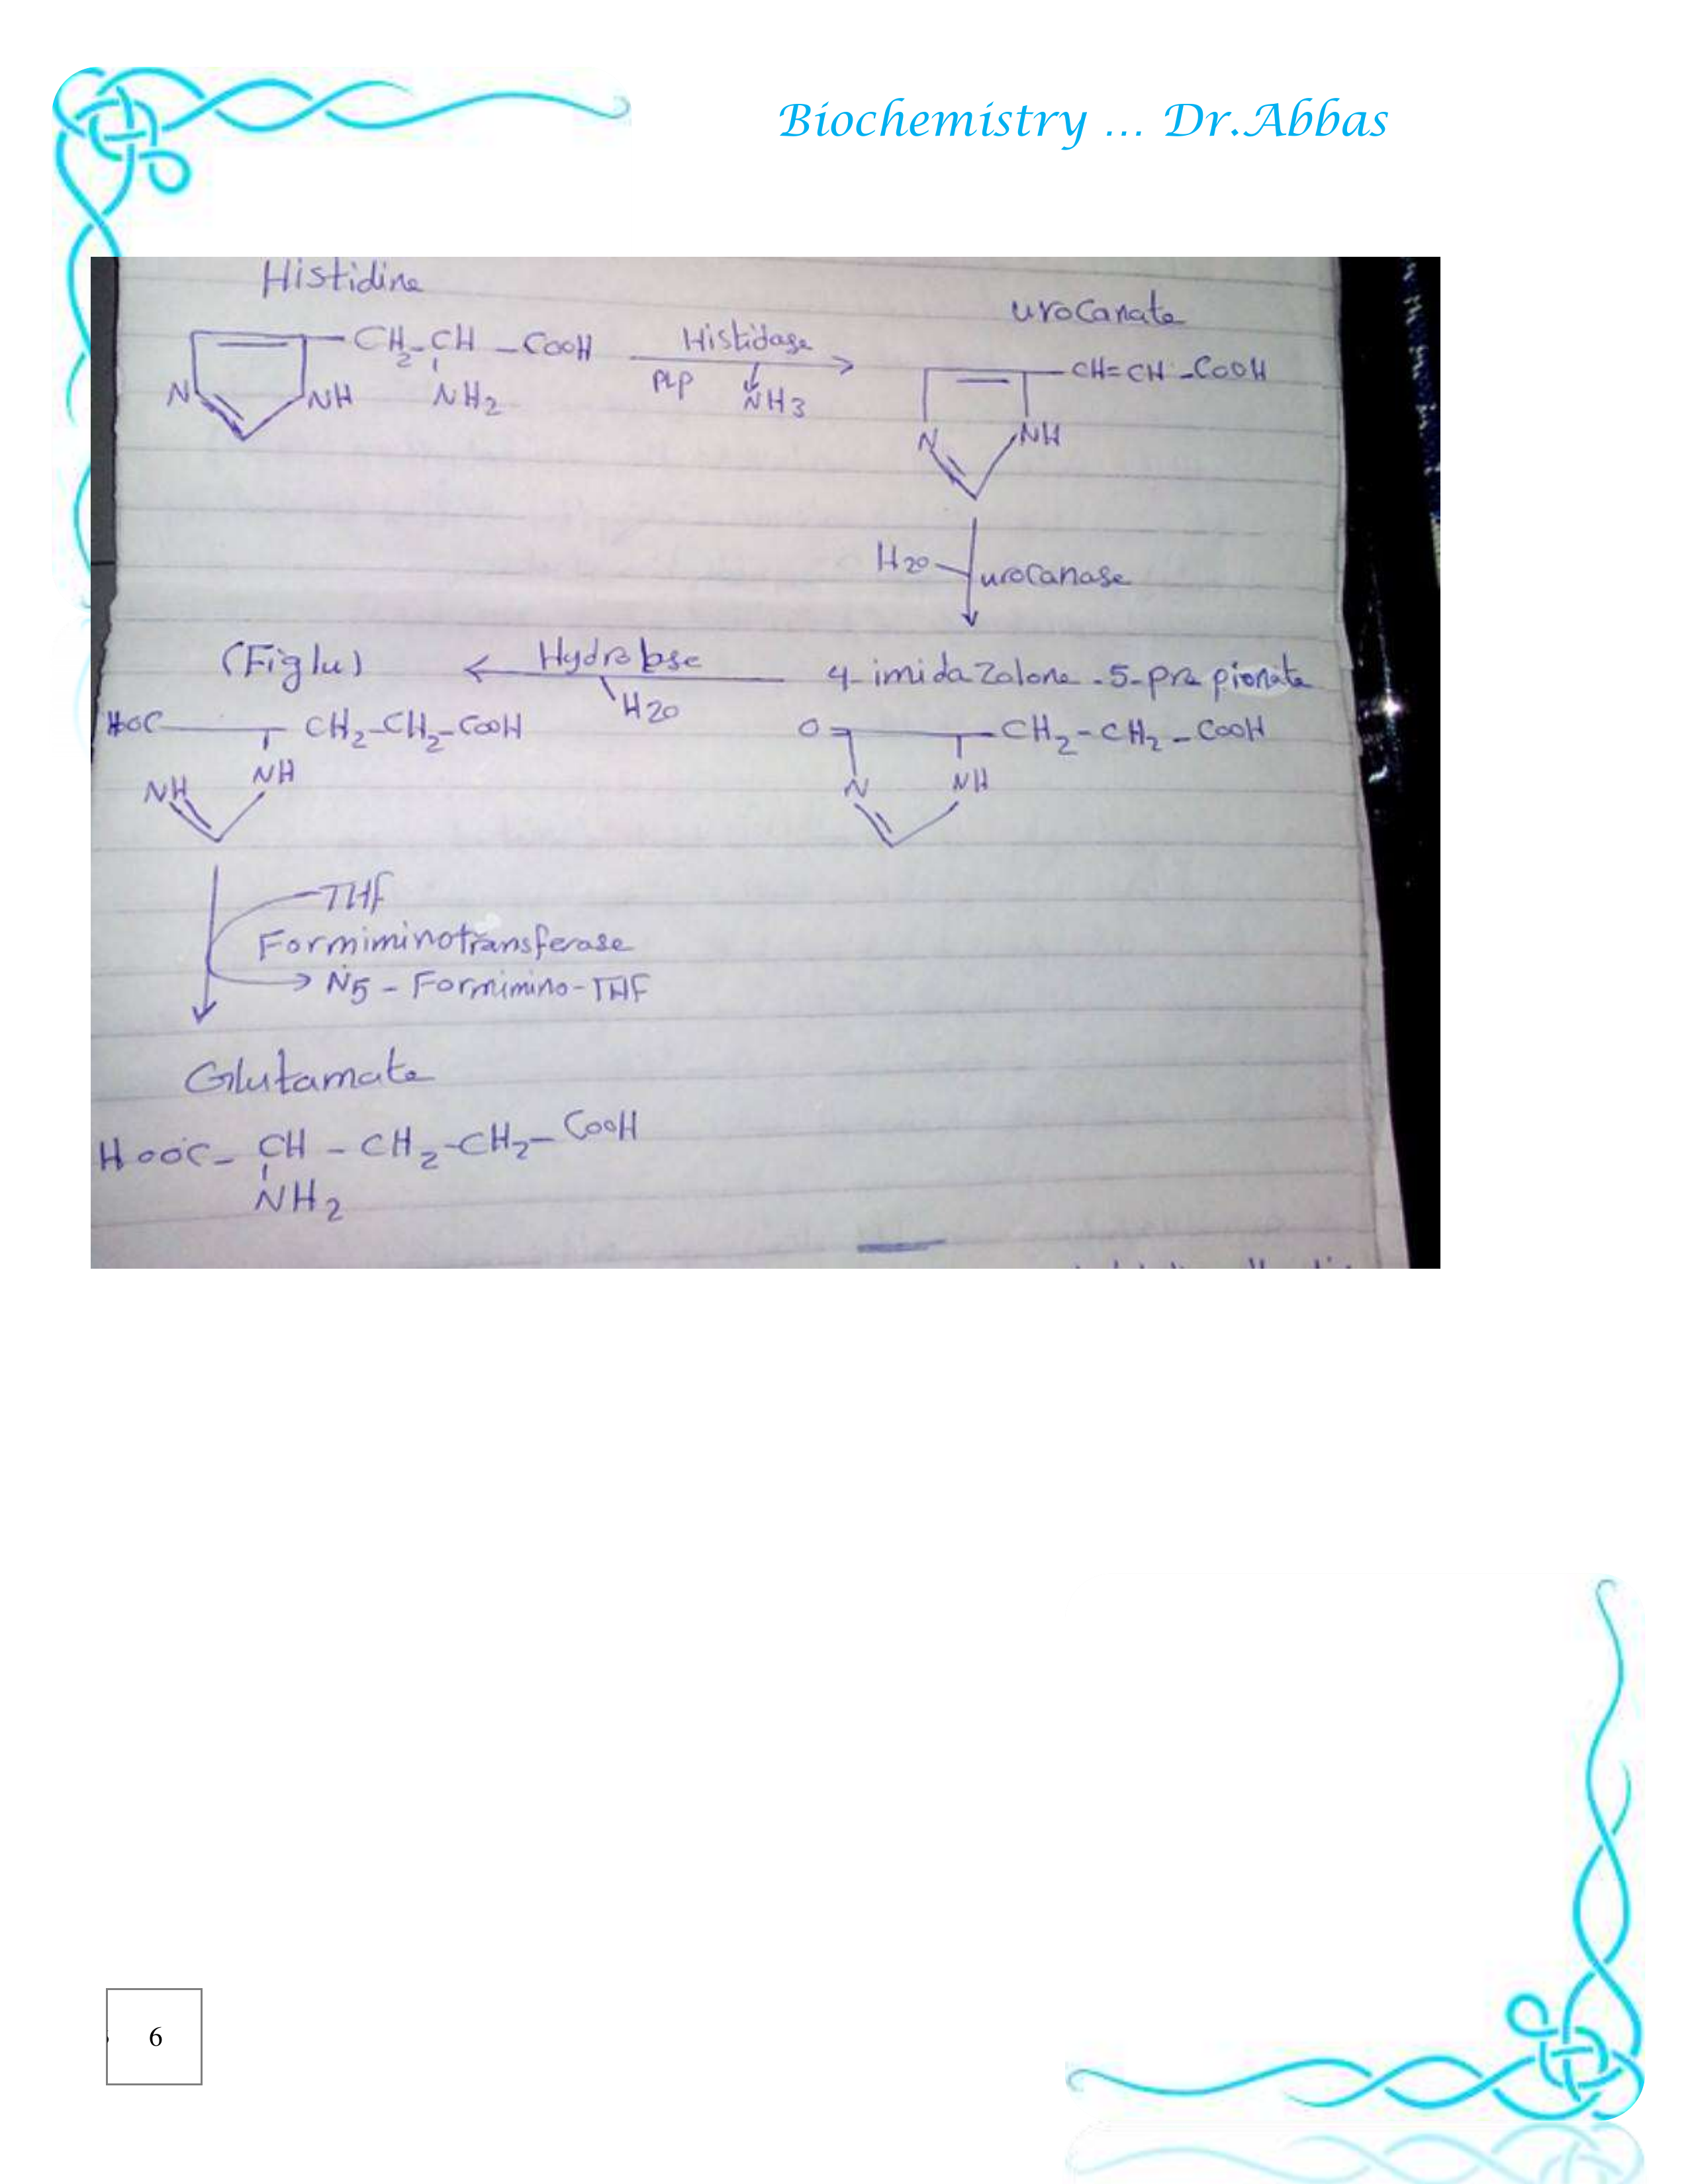 Biochemistry ... Dr.Abbas
Histidine
CH2-CH-COOH
N NH NH2
Histidase
PLP NH3
urocanate
CH=CH-COOH
N NH
H2O urocanase
4-imidazolone-5-propionate
O CH2-CH2-COOH
N NH
Hydrolase
H2O
(Figlu)
HOC CH2-CH2-COOH
NH NH
THF
Formiminotransferase
N5-Formimino-THF
Glutamate
HOOC-CH-CH2-CH2-COOH
NH2
6